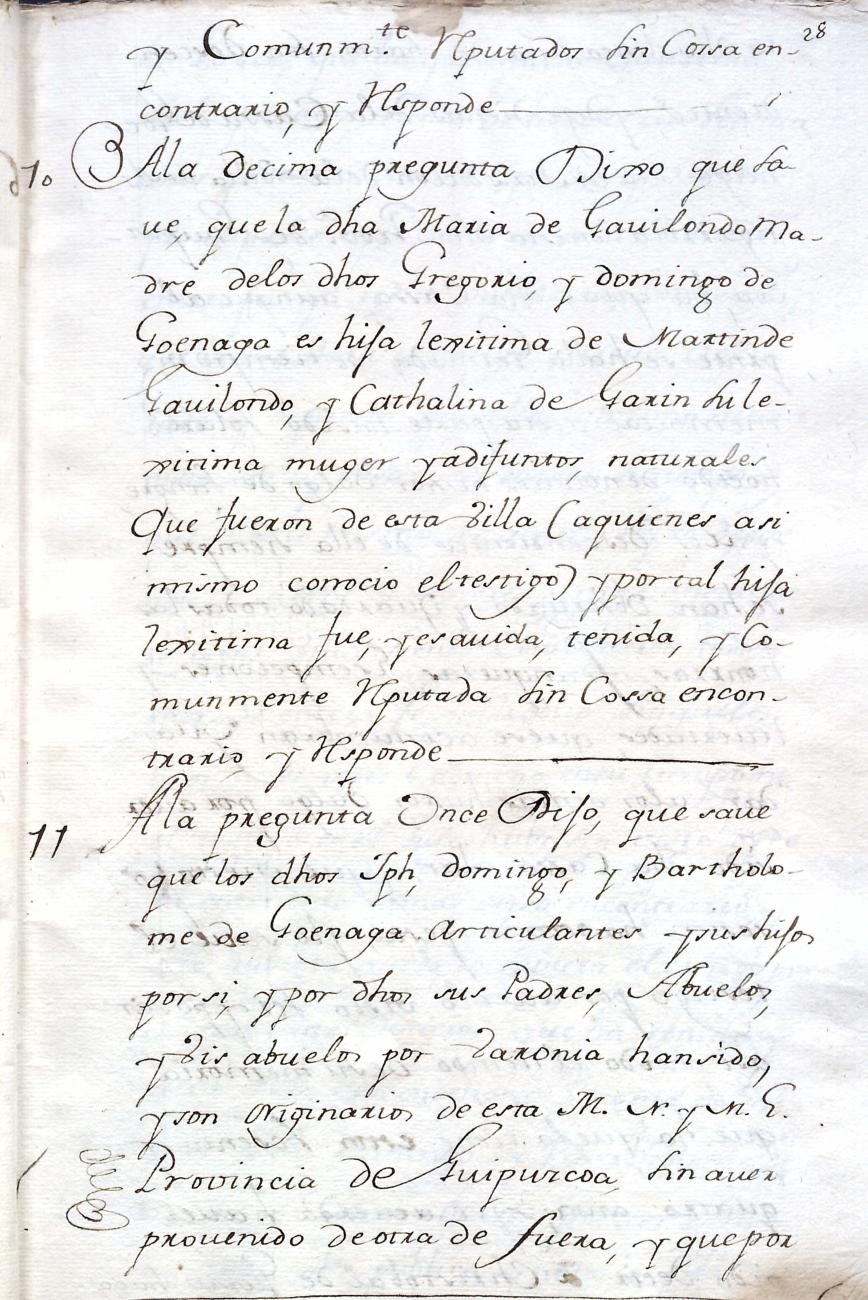 28
y Comunm.te Rputados sin Cossa en-
contrario, y Rsponde
10 Ala Decima pregunta Dixo que sa-
ve, que la dha Maria de Gavilondo Ma-
dre delos dhos Gregorio, y domingo de
Goenaga es hija lexitima de Martin de
Gavilondo, y Cathalina de Garin su le-
xitima muger ya difuntos, naturales
Que fueron de esta Villa (aquienes asi
mismo conocio el testigo) y por tal hija
lexitima fue, y es avida, tenida, y Co-
munmente Rputada sin Cossa encon-
trario, y Rsponde
11 Ala pregunta Once Dijo, que save
que los dhos Jph, domingo, y Bartholo-
me de Goenaga Articulantes y sus hijos
por si, y por dhos sus Padres, Abuelos,
y Vis abuelos por Varonia han sido,
y son Originarios de esta M. N. y M. L.
Provincia de Guipuzcoa, sin aver
provenido de otra de fuera, y que por